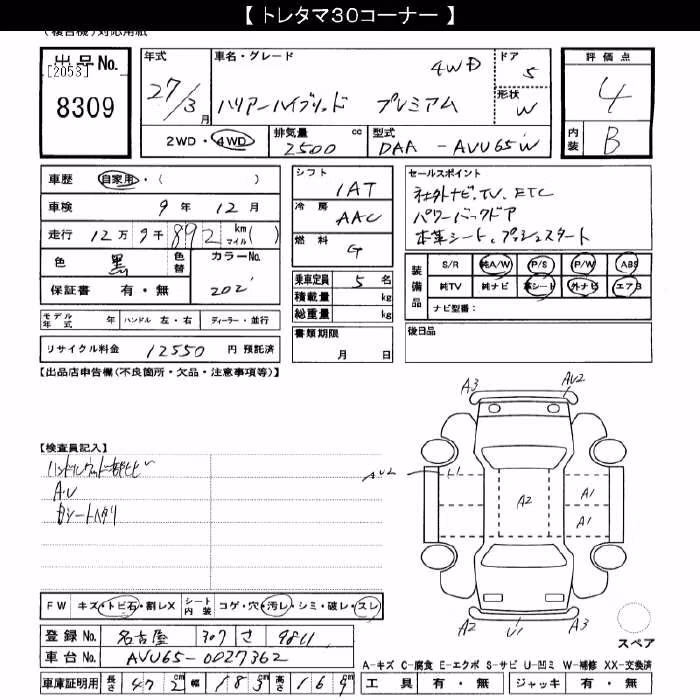 【 トレタマ30コーナー 】
(複合機)対応用紙
出品No.
[2053]
8309
年式 27/3月
車名・グレード 4WD
ハリアーハイブリッド プレミアム
ドア 5
形状 W
評価点 4
内装 B
2WD・4WD
排気量 2500 cc
型式 DAA - AVU65W
車歴 自家用・( )
車検 9年 12月
走行 12万 9千 892 km マイル ( )
色 黒 色替 カラーNo. 202
保証書 有・無
モデル年式 年 ハンドル 左・右 ディーラー・並行
リサイクル料金 12550 円 預託済
シフト 1AT
冷房 AAC
燃料 G
乗車定員 5 名
積載量 kg
総重量 kg
書類期限
月 日
セールスポイント
社外ナビ、TV、ETC
パワーバックドア
本革シート、プッシュスタート
装備品
S/R 純A/W P/S P/W ABS
純TV 純ナビ 革シート 外ナビ エアB
ナビ型番:
後日品
【出品店申告欄(不良箇所・欠品・注意事項等)】
【検査員記入】
AU
シートヘタリ
A3 AU2
AU2 U1
A2 A1
A1
A2 U1 A3
スペア
FW キズ・トビ石・割レX シート内装 コゲ・穴・汚レ・シミ・破レ・スレ
登録No. 名古屋 307 さ 9811
車台No. AVU65-0027362
車庫証明用 長さ 472cm 幅 183cm 高さ 169cm
A-キズ C-腐食 E-エクボ S-サビ U-凹ミ W-補修 XX-交換済
工具 有・無 ジャッキ 有・無